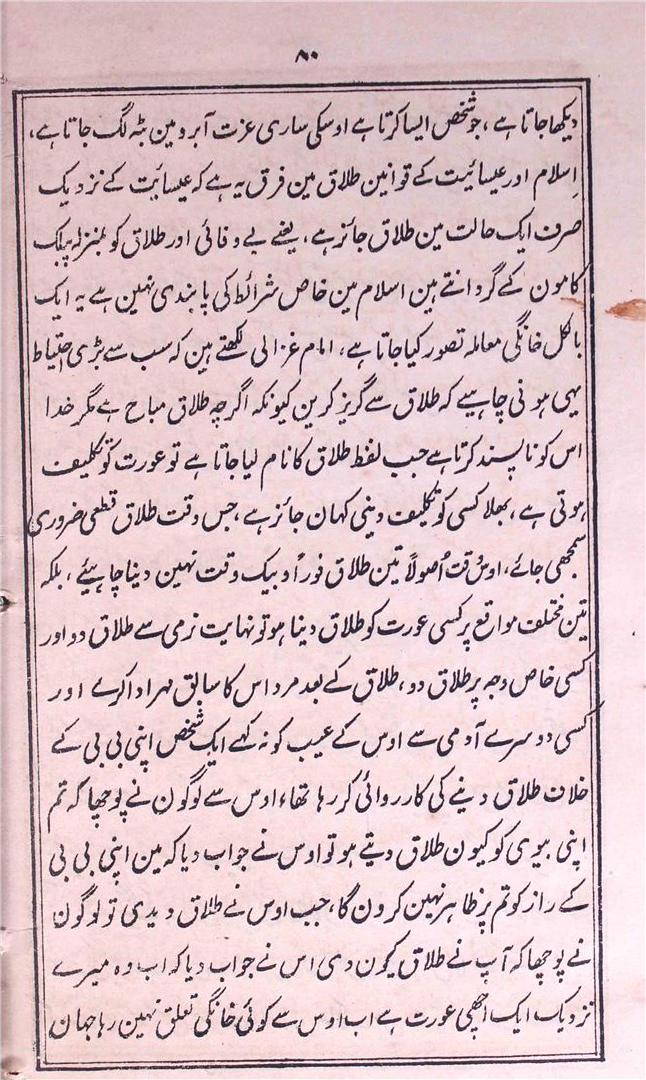 ۸۰
دیکھا جاتا ہے، جو شخص ایسا کرتا ہے اوسکی ساری عزت آبرو مین بٹہ لگ جاتا ہے،
اِسلام اور عیسائیت کے قوانین طلاق مین فرق یہ ہے کہ عیسائیت کے نزدیک
صرف ایک حالت مین طلاق جائز ہے، یعنے بے وفائی اور طلاق کو بمنزلہ پبلک
کامون کے گردانتے ہین اسلام مین خاص شرائط کی پابندی نہین ہے یہ ایک
بالکل خانگی معاملہ تصور کیا جاتا ہے، امام غزالی لکھتے ہین کہ سب سے بڑی احتیاط
یہی ہونی چاہیے کہ طلاق سے گریز کرین کیونکہ اگرچہ طلاق مباح ہے مگر خدا
اس کو ناپسند کرتا ہے جب لفظ طلاق کا نام لیا جاتا ہے تو عورت کو تکلیف
ہوتی ہے، بھلا کسی کو تکلیف دینی کہان جائز ہے، جس وقت طلاق قطعی ضروری
سمجھی جائے، اوسوقت اُصولاً تین طلاق فوراً و بیک وقت نہین دینا چاہیئے، بلکہ
تین مختلف مواقع پر کسی عورت کو طلاق دینا ہو تو نہایت نرمی سے طلاق دو اور
کسی خاص وجہ پر طلاق دو، طلاق کے بعد مرد اس کا سابق مہر ادا کرے اور
کسی دوسرے آدمی سے اوس کے عیب کو نہ کہے ایک شخص اپنی بی بی کے
خلاف طلاق دینے کی کارروائی کر رہا تھا، اوس سے لوگون نے پوچھا کہ تم
اپنی بیوی کو کیون طلاق دیتے ہو تو اوس نے جواب دیا کہ مین اپنی بی بی
کے راز کو تم پر ظاہر نہین کرون گا، جب اوس نے طلاق دیدی تو لوگون
نے پوچھا کہ آپ نے طلاق کیون دی اس نے جواب دیا کہ اب وہ میرے
نزدیک ایک اچھی عورت ہے اب اوس سے کوئی خانگی تعلق نہین رہا جہان